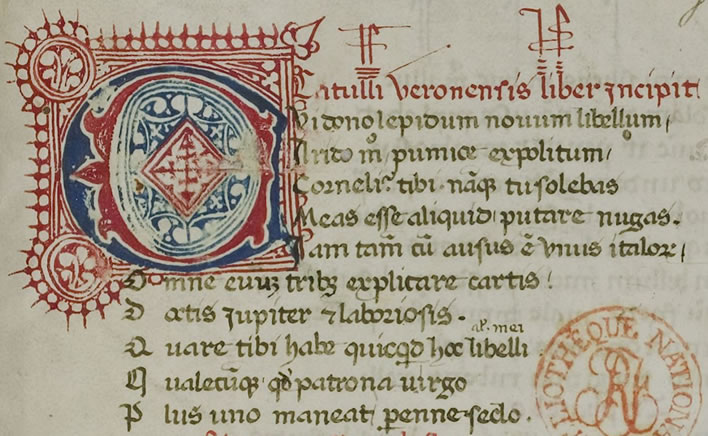 Catulli Veronensis liber Incipit
Vi dono lepidum novum libellum
Arido m̊ pumice expolitum
Corneli tibi. nāq tu solebas
Meas esse aliquid putare nugas.
Iam tam̄ cū ausus ē vnus italoꝝ
Omne euuꝫ tribꝫ explicare cartis.
Doctis Jupiter ⁊ laboriosis.
al. mei
Quare tibi habe quicqd hoc libelli
Qualecūqꝫ qd patrona uirgo
Plus uno maneat perenne seclo.
BLIOTHÈQUE NATION